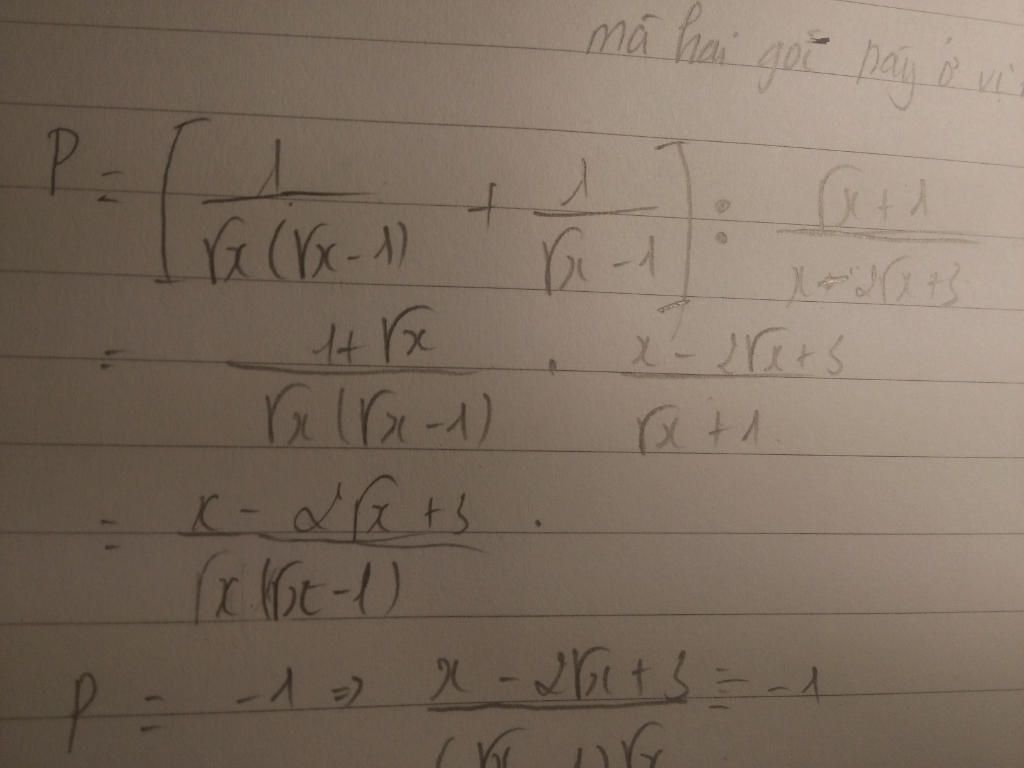 mà hai góc này ở vị
P = [ 1 / √x(√x - 1) + 1 / √x - 1 ] : √x + 1 / x - 2√x + 3
= 1 + √x / √x(√x - 1) . x - 2√x + 3 / √x + 1
= x - 2√x + 3 / √x(√x - 1) .
P = -1 => x - 2√x + 3 / (√x - 1)√x = -1